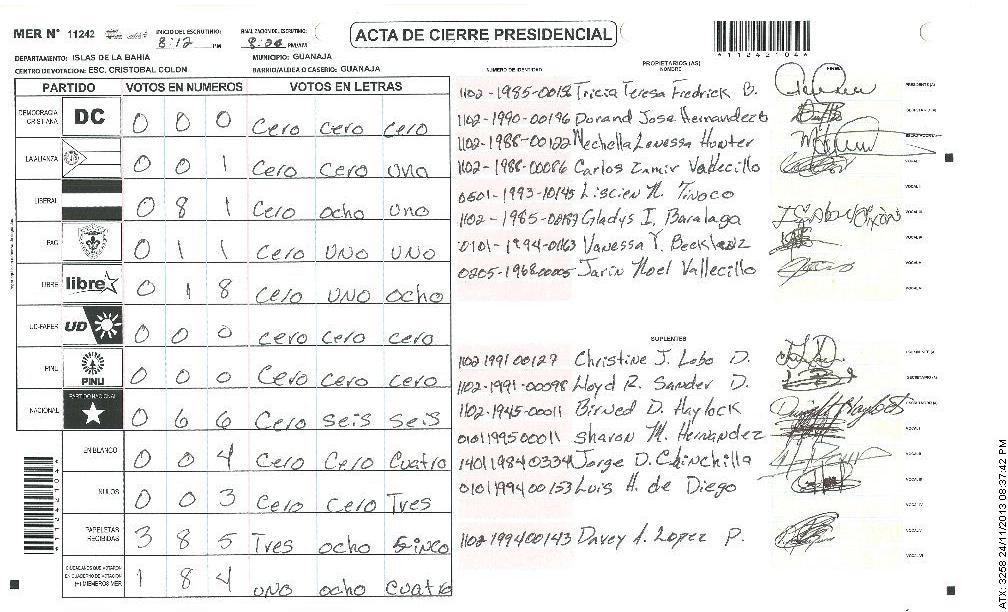 MER Nº 11242 INICIO DEL ESCRUTINIO: 8:12 PM FINALIZACION DEL ESCRUTINIO: PM/AM
ACTA DE CIERRE PRESIDENCIAL
11242041
DEPARTAMENTO: ISLAS DE LA BAHIA MUNICIPIO: GUANAJA
CENTRO DE VOTACION: ESC. CRISTOBAL COLON BARRIO/ALDEA O CASERIO: GUANAJA
PARTIDO VOTOS EN NUMEROS VOTOS EN LETRAS
DEMOCRACIA CRISTIANA DC 0 0 0 Cero Cero Cero
LA ALIANZA 0 0 1 Cero Cero Uno
LIBERAL 0 8 1 Cero ocho Uno
PAC 0 1 1 Cero UNO UNO
LIBRE libre 0 1 8 Cero UNO ocho
UD-FAPER UD 0 0 0 Cero Cero Cero
PINU PINU 0 0 0 Cero Cero Cero
NACIONAL PARTIDO NACIONAL 0 6 6 Cero Seis Seis
EN BLANCO 0 0 4 Cero Cero Cuatro
NULOS 0 0 3 Cero Cero Tres
PAPELETAS RECIBIDAS 3 8 5 Tres ocho Sinco
CIUDADANOS QUE VOTARON EN CUADERNO DE VOTACION (+) MIEMBROS MER 1 8 4 UNO ocho Cuatro
NUMERO DE IDENTIDAD PROPIETARIOS (AS) NOMBRE FIRMA
Tricia Teresa Fredrick B. PRESIDENTE (A)
1102-1990-00196 Dorand Jose Hernandez SECRETARIO (A)
1102-1988-00122 Mechella
1102-1988-00086 Carlos Vallecillo VOCAL I
VOCAL II
1102-1985-00187 Gladys I. Baralaga VOCAL III
Vanessa Y. VOCAL IV
Jarin Noel Vallecillo VOCAL V
VOCAL VI
SUPLENTES
1102 1991 00127 Christine J. Lobo D.
1102-1991-00098 Lloyd R. Sander D. SECRETARIO (A)
1102-1945-00011 D. Haylock
0101199500011 Sharon M. Hernandez VOCAL I
Jorge D. Chinchilla VOCAL II
0101199400153 Luis H. de Diego VOCAL III
VOCAL IV
1102199400143 Davey A. Lopez P. VOCAL V
VOCAL VI
ATX: 3258 24/11/2013 08:37:42 PM